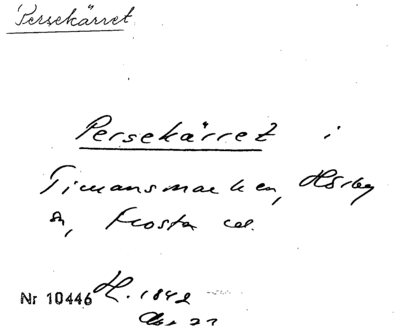 Persekärret
Persekärret i
Timansmarken, Hörby
sn, Frosta hd.
Nr 10446 H. 1842